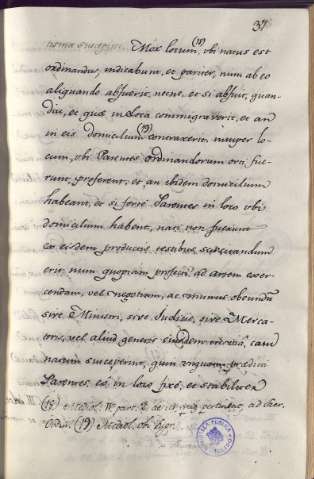 37
Mox locum, (18) ubi natus est
ordinandus, indicabunt, et pariter, num ab eo
aliquando abfuerit, necne, et si abfuit, quan-
diu, et quæ in loca commigraverit, et an
in eis domicilium (19) contraxerit, insuper lo-
cum, ubi Parentes ordinandorum orti fue-
runt, proferent, et an ibidem domicilium
habeant, et si fortè Parentes in loco ubi
domicilium habent, nati non fuerunt
ex eisdem testibus
erit, num quopiam ad artem exer-
cendam, vel negotium, ac munus obeundum
sive Ministri, sive Judicis, sive Merca-
toris, vel alius generis
susceperint, quin unquam prædicti
Parentes eo in loco fixè, et stabiliter
(18) Mediol. IV part. 2 de iis quæ pertinent ad
(19) Mediol. ubi supr.